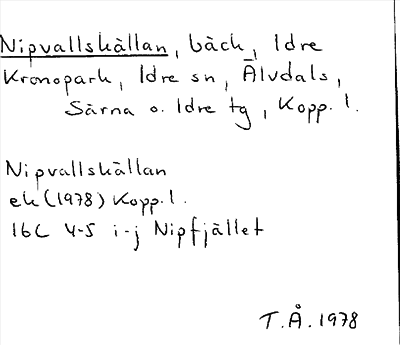 Nipvallskällan, bäck, Idre
Kronopark, Idre sn, Älvdals,
Särna o. Idre tg, Kopp. l.
Nipvallskällan
ek (1978) Kopp. l.
16C 4-5 i-j Nipfjället
T.Å. 1978